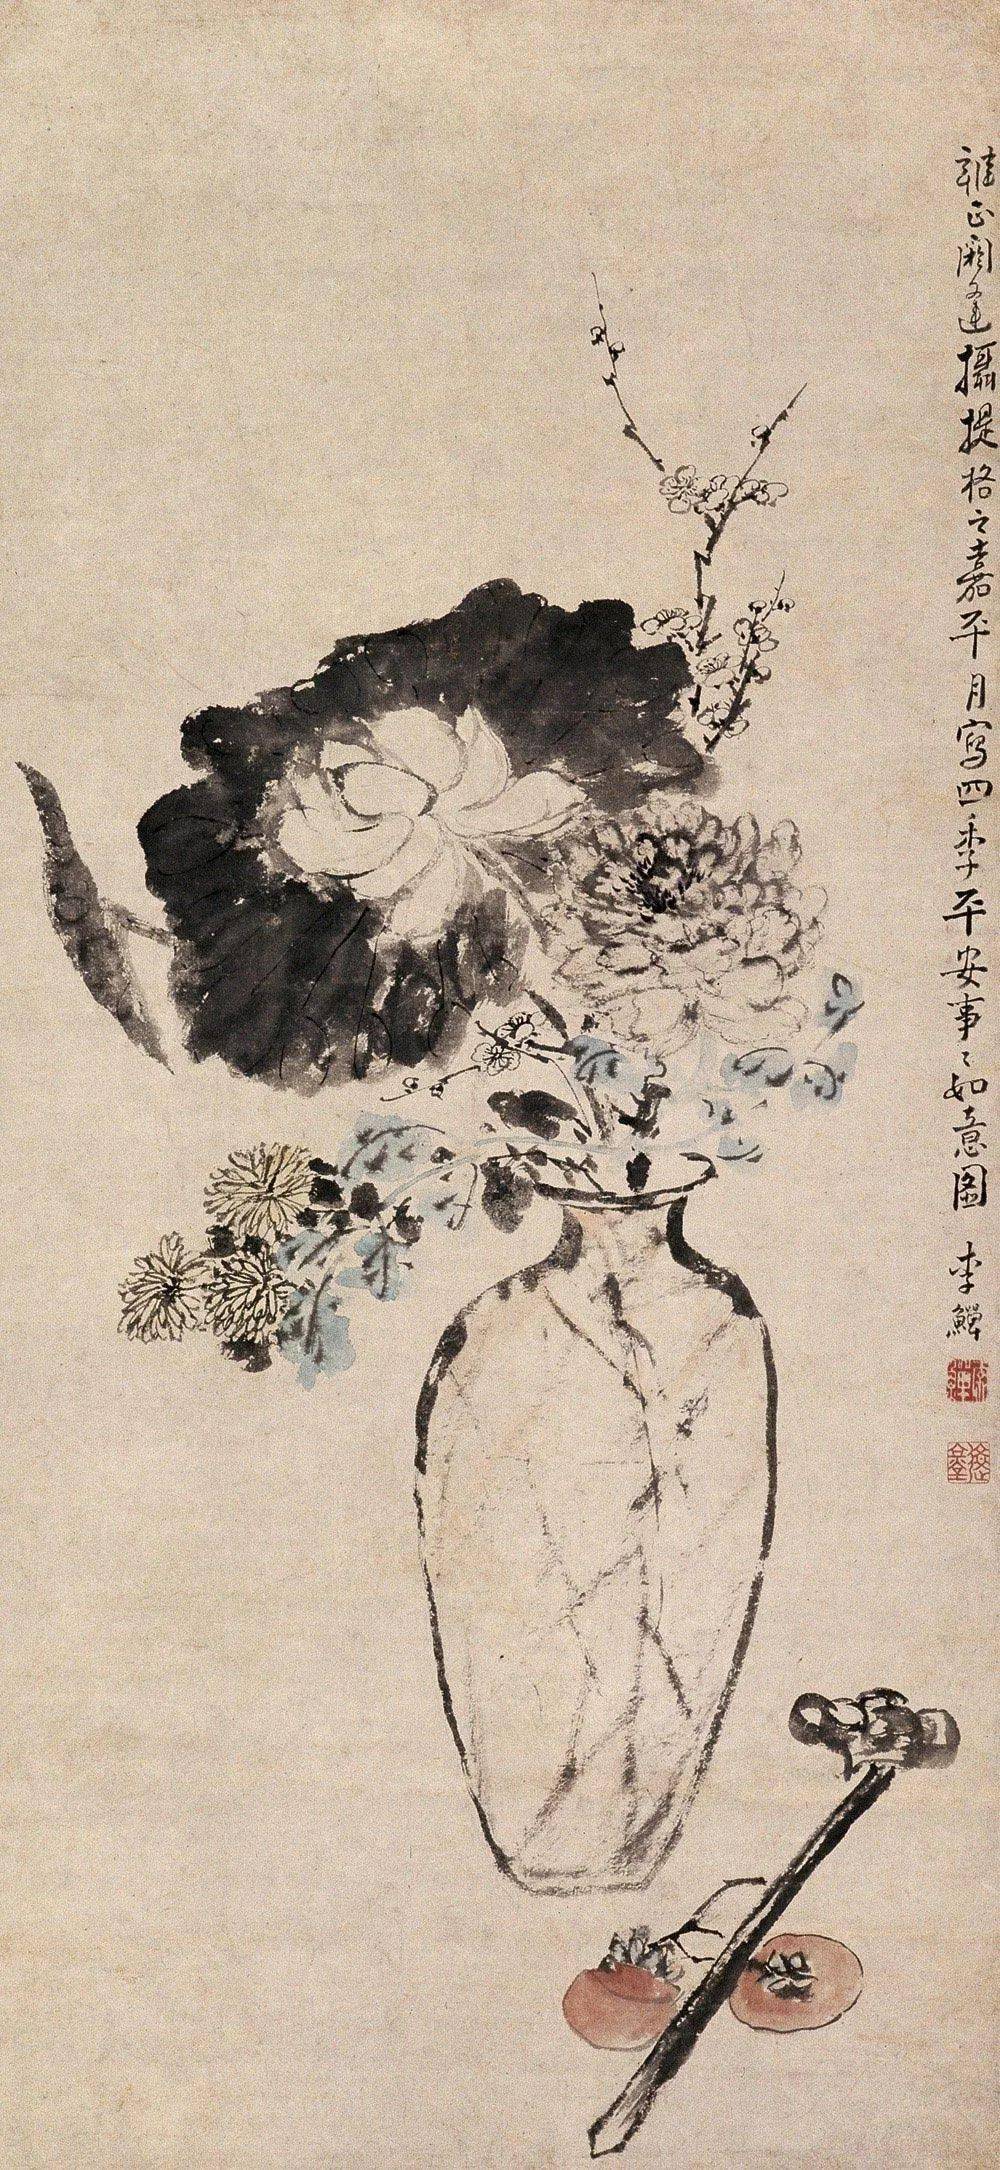 雍正閼逢攝提格之嘉平月寫四季平安事〻如意圖　李鱓